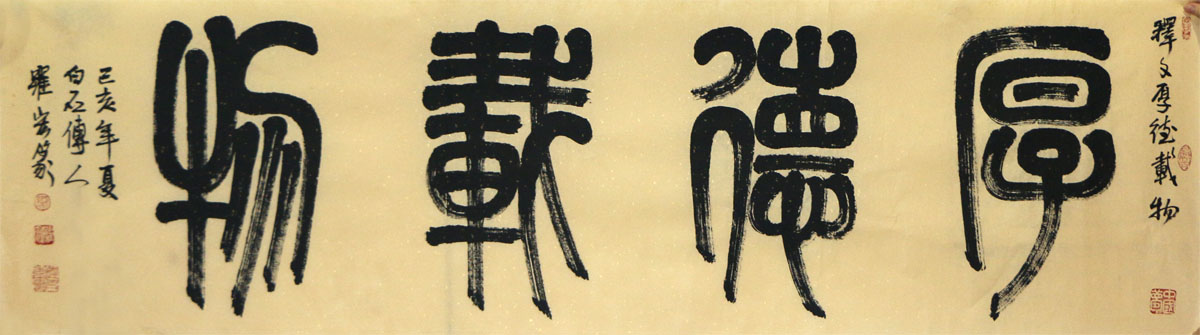 釋文厚德載物
厚德載物
己亥年夏
白石傳人
篆